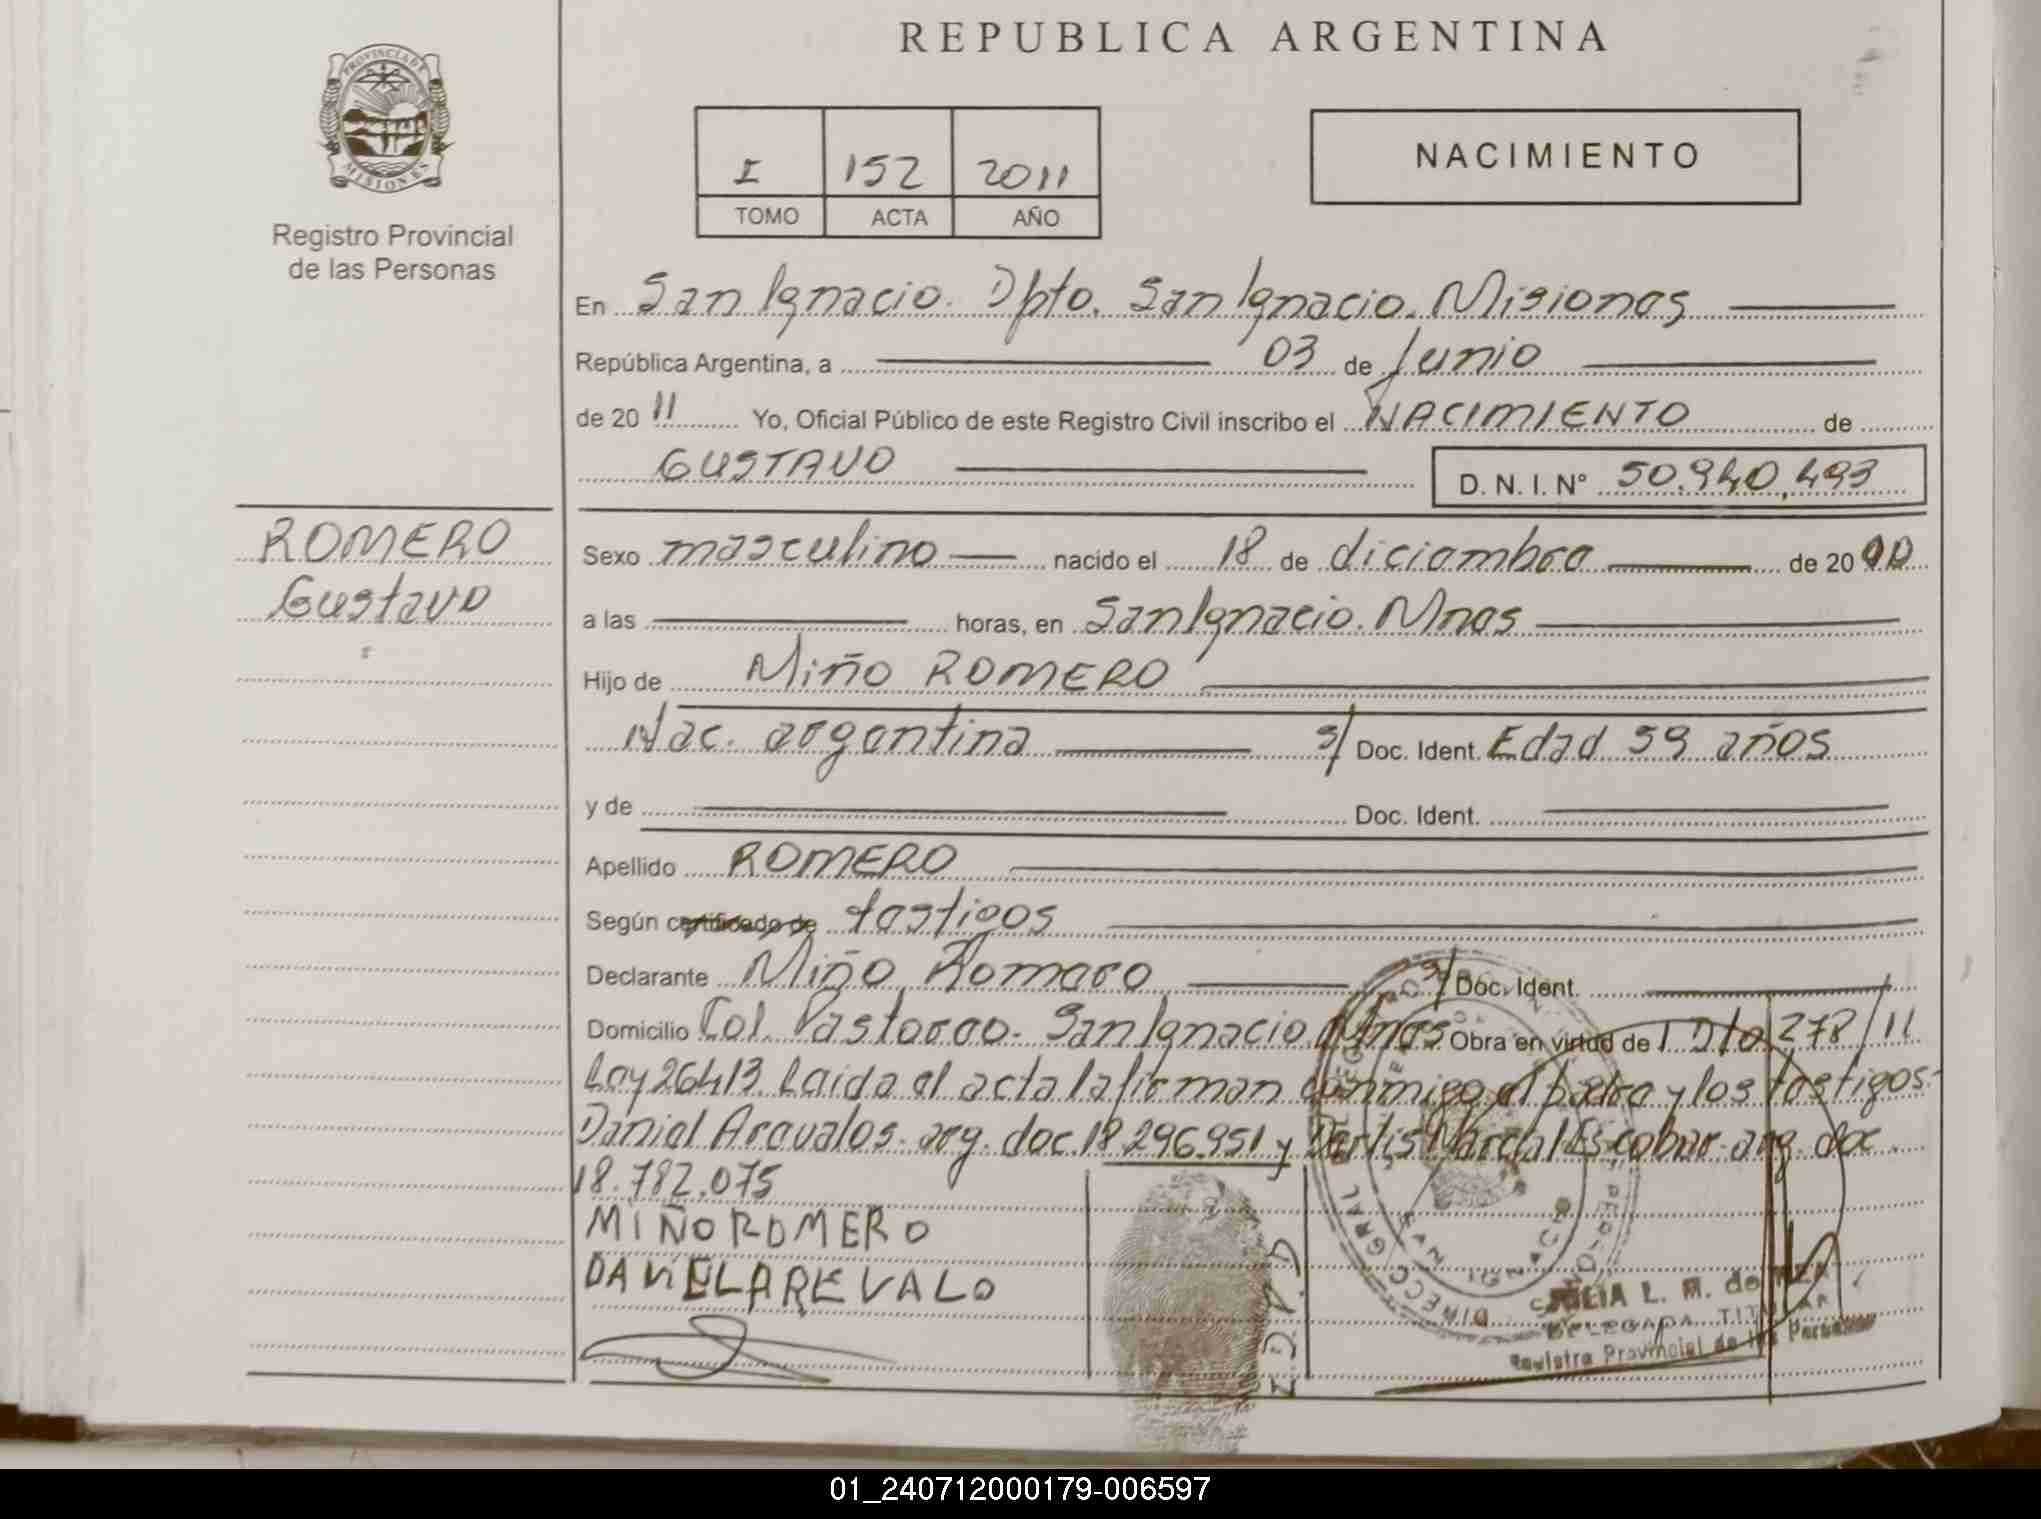 REPUBLICA ARGENTINA
PROVINCIA DE
MISIONES
Registro Provincial
de las Personas
I 152 2011
TOMO ACTA AÑO
NACIMIENTO
En San Ignacio. Dpto. San Ignacio. Misiones
República Argentina, a 03 de Junio
de 20 11 Yo, Oficial Público de este Registro Civil inscribo el NACIMIENTO de
GUSTAVO D. N. I. N° 50.940.493
ROMERO
Gustavo
Sexo masculino nacido el 18 de diciembre de 20 00
a las horas, en San Ignacio. Mnes
Hijo de Miño ROMERO
Nac. argentina s/ Doc. Ident. Edad 59 años
y de Doc. Ident.
Apellido ROMERO
Según certificado de testigos
Declarante Miño Romero s/ Doc. Ident.
Domicilio Col. Pastoreo. San Ignacio. Mnes Obra en virtud de Dto 278/11
Ley 26413. Leida el acta la firman conmigo el padre y los testigos.
Daniel Arevalos. arg. doc. 18.296.951 y Derlis Marcial Escobar. arg. doc.
18.782.075
MIÑO ROMERO
DANIEL AREVALO
I.D.P.D
L. M. de
DELEGADA TITULAR
Registro Provincial de las Personas
01_240712000179-006597